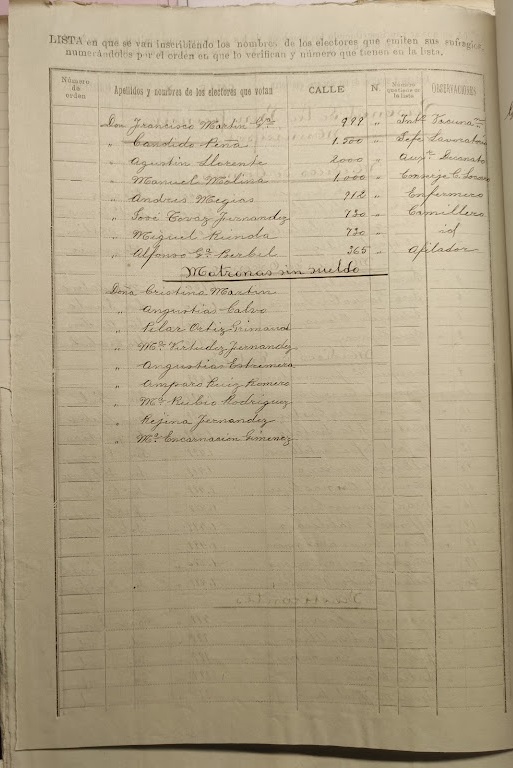 LISTA en que se van inscribiendo los nombres de los electores que emiten sus sufragios,
numerándoles por el orden en que lo verifican y número que tienen en la lista.
Número de orden Apellidos y nombres de los electores que votan CALLE N. Número que tiene en la lista OBSERVACIONES
Don Francisco Martin Gª 999 "
" Candido Peña 1.500 " Gefe Lavoratorio
" Agustin Llorente 2000 "
" Manuel Molina 1.000 " Conserje C. Socorro
" Andres Megias 912 " Enfermero
" José Tovaz Fernandez 730 " Camillero
" Miguel Rienda 730 " id
" Alfonso Gª Berbel 365 " Afilador
Matronas sin sueldo
Doña Cristina Martin
" Angustias Calvo
" Pilar Ortiz
" Mª Virtudez Fernandez
" Angustias Estremera
" Amparo Ruiz Romero
" Mª Rubio Rodriguez
" Rejina Fernandez
" Mª Encarnacion Gimenez